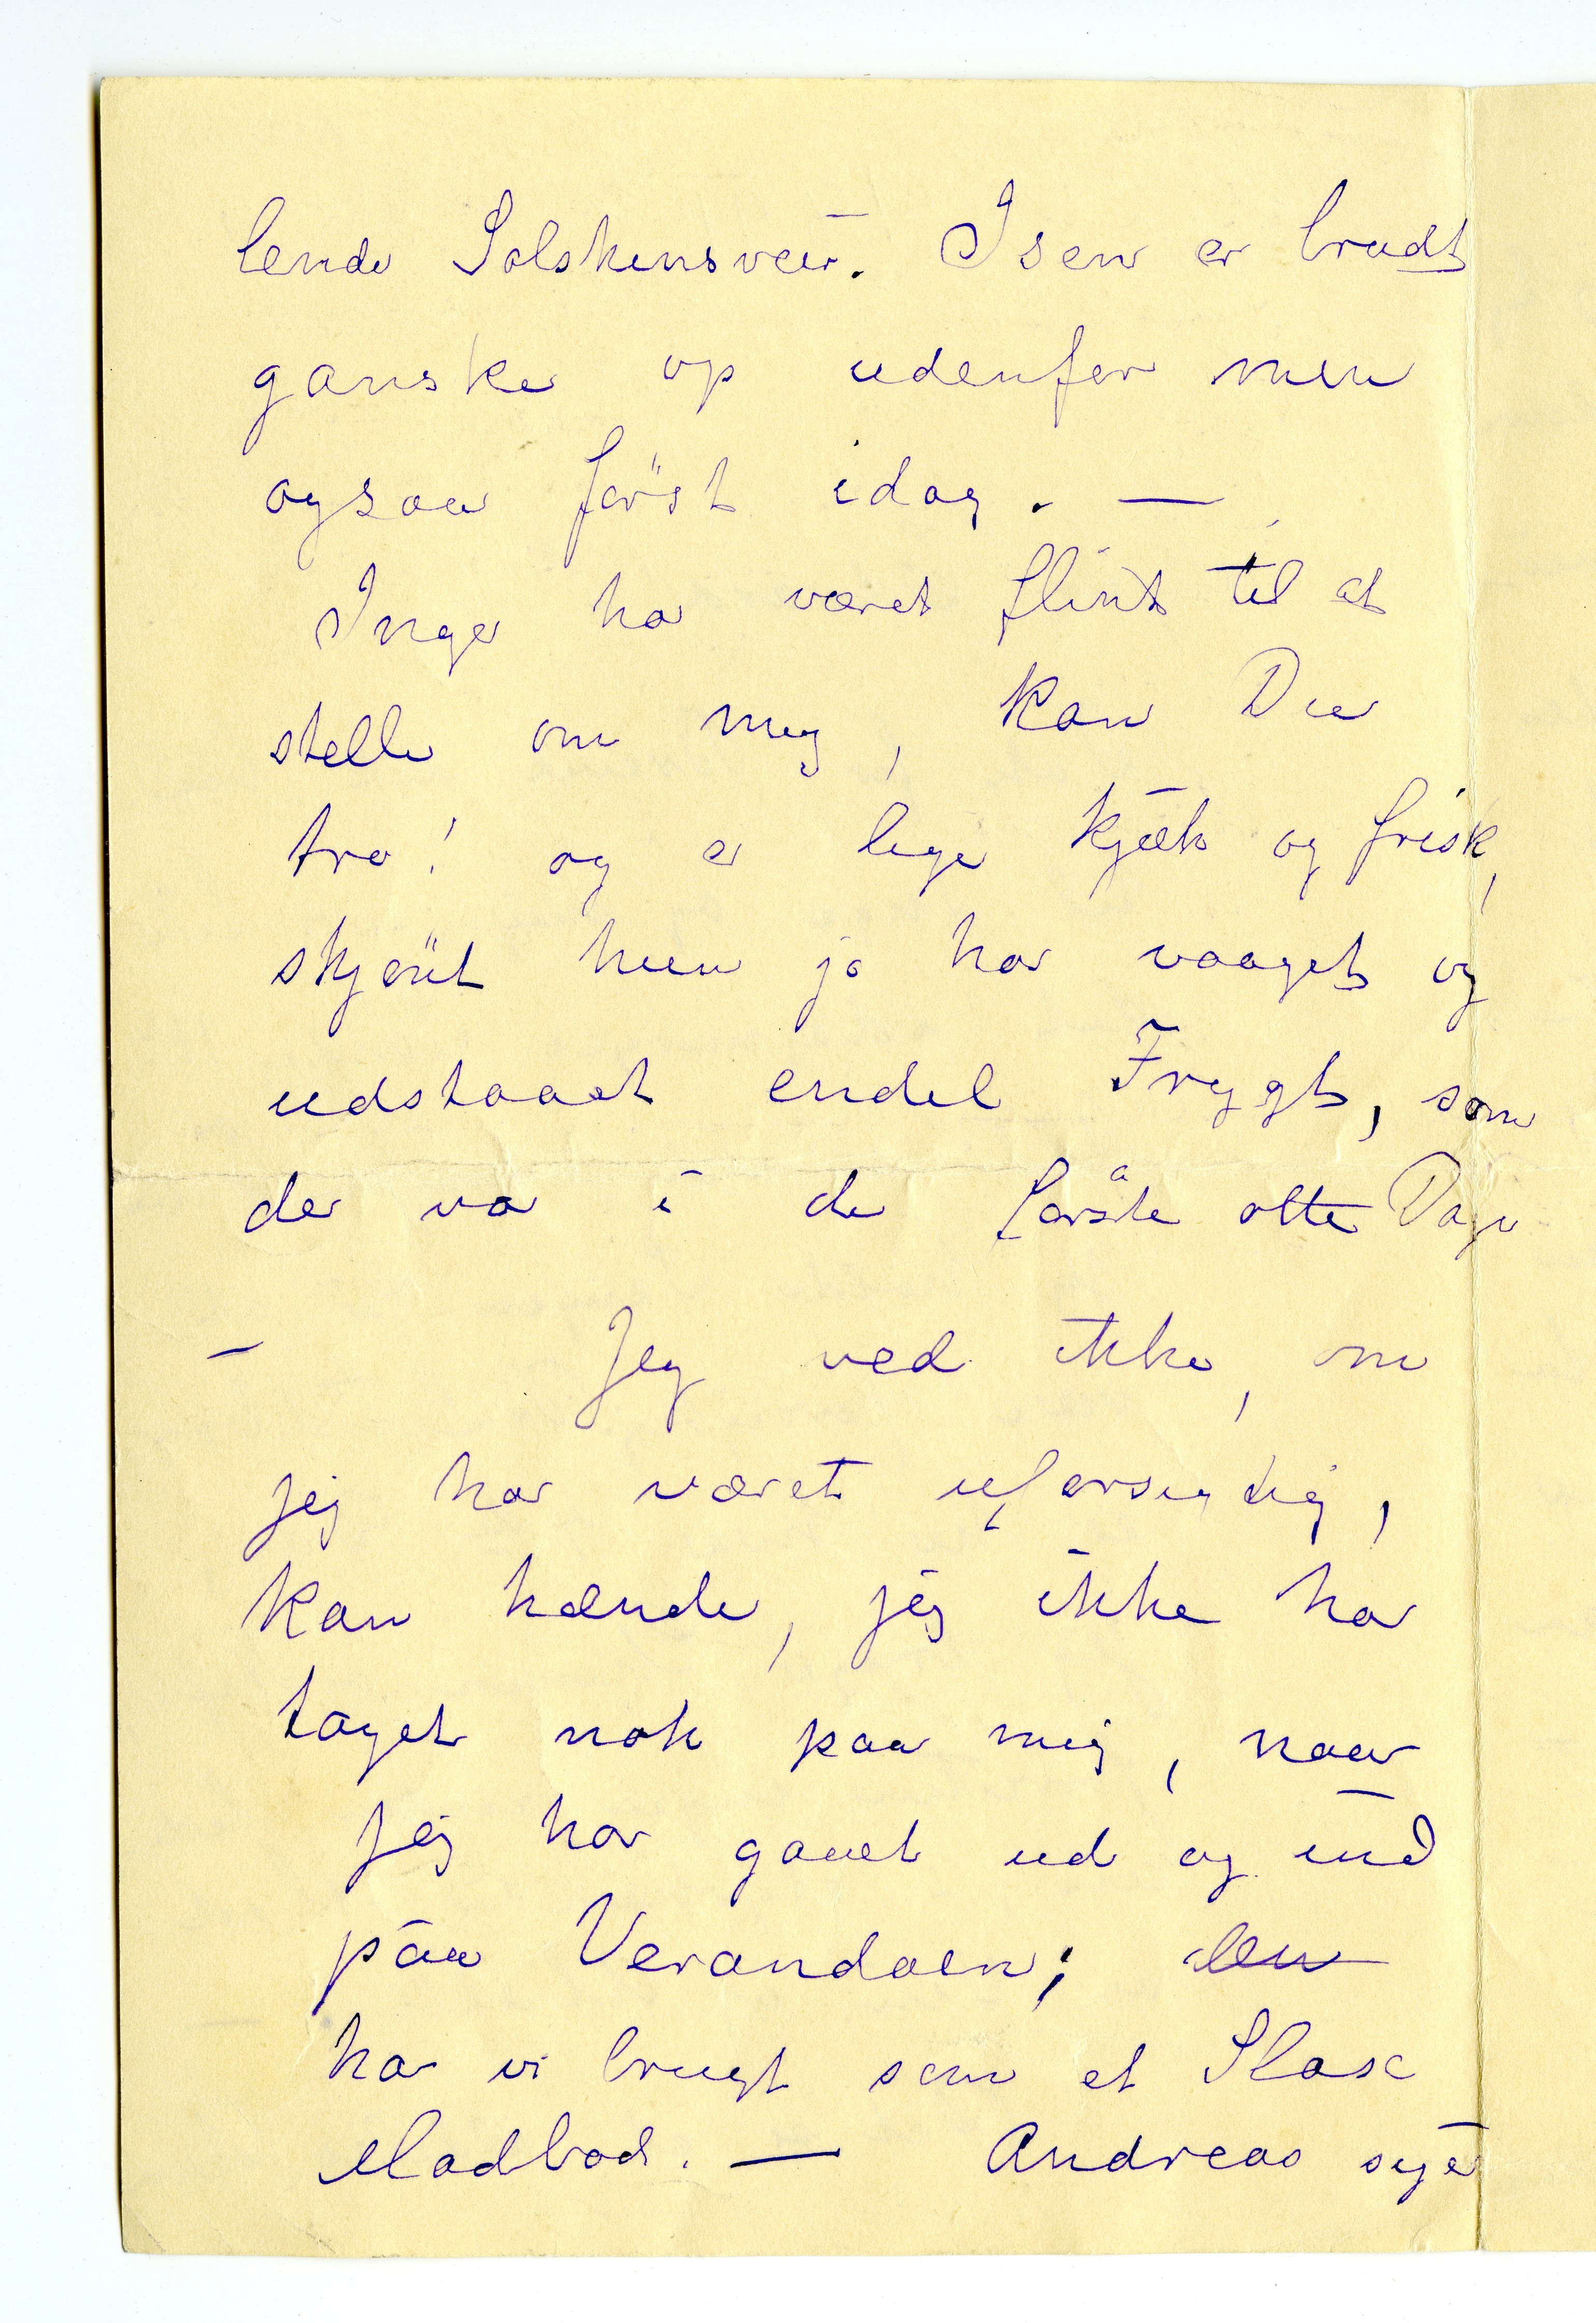 lende Solskinsveir. Isen er brudt
ganske op udenfor men
ogsaa först idag. —
Inger har været flink til at
stelle om mig, kan Du
tro! og er lige kjæk og frisk,
skjönt hun jo har vaaget og
udstaaet endel Frygt, som
der var i de förste otte Dage
— Jeg ved ikke, om
jeg har været uforsigtig,
kan hænde, jeg ikke har
taget nok paa mig, naar
jeg har gaaet ud og ind
paa Verandaen; den
har vi brugt som et Slags
Madbod. — Andreas siger